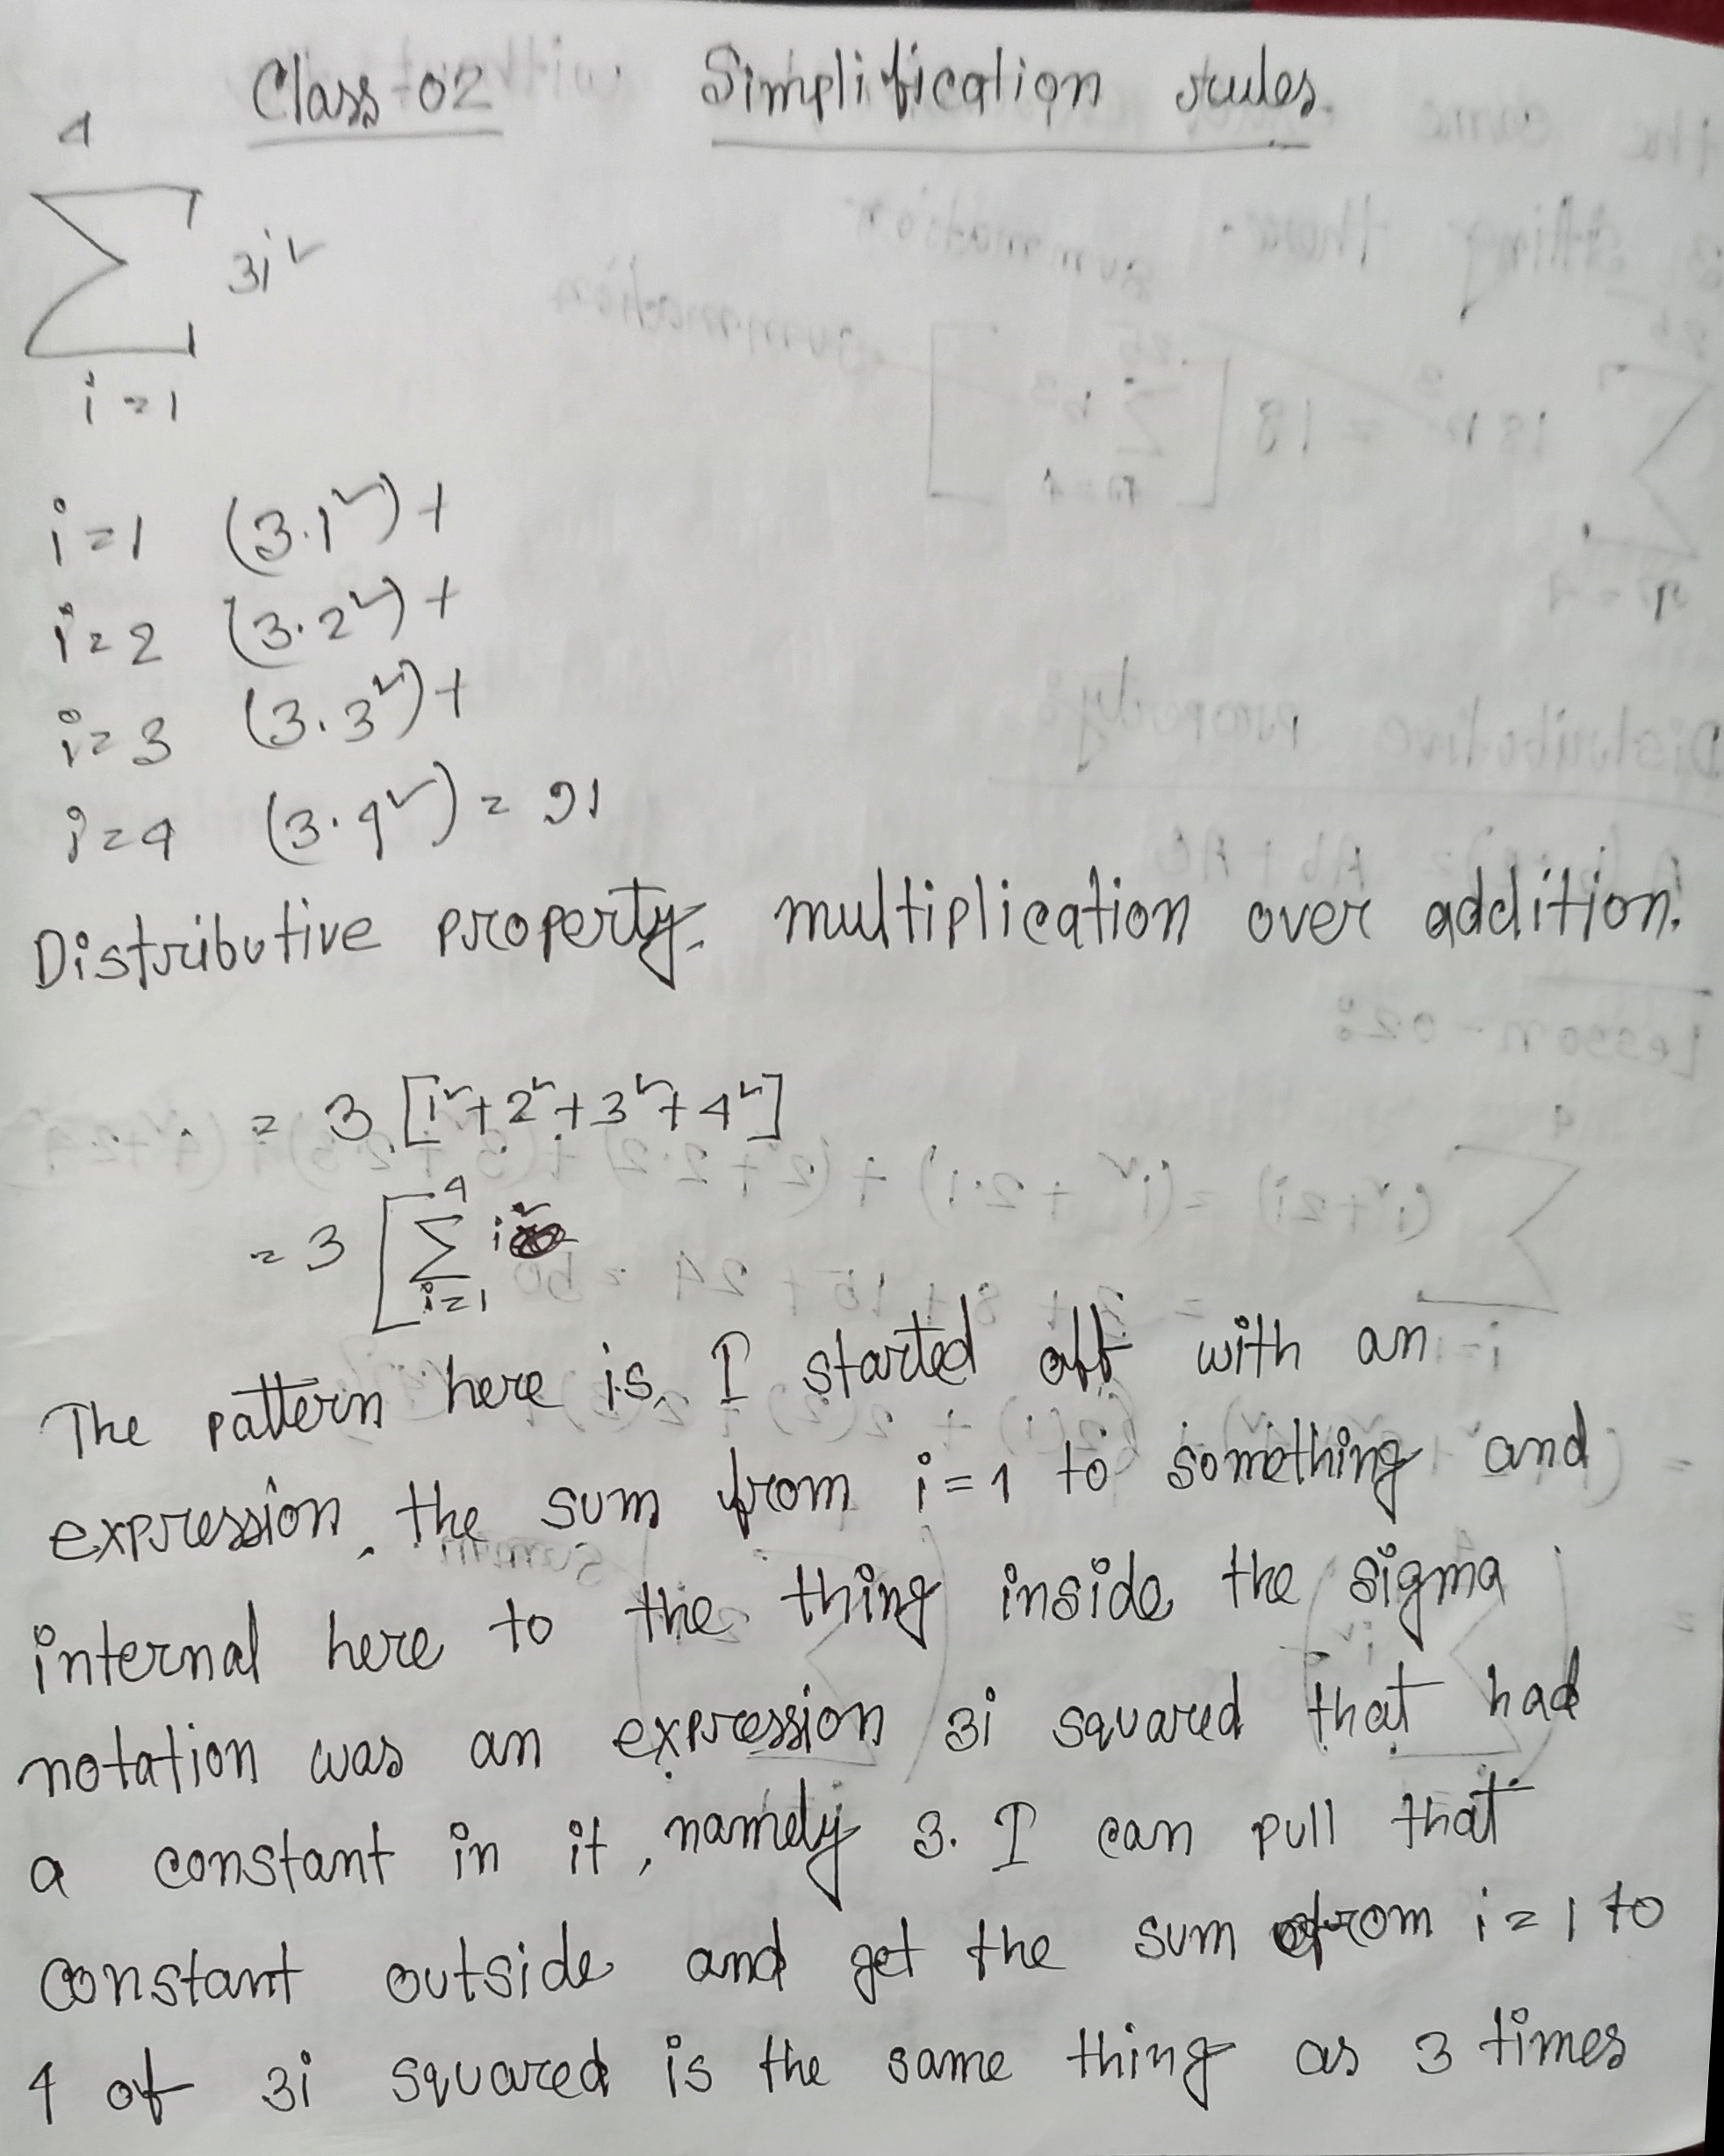 Class-02 Simplification rules.
4
∑ 3i²
i=1
i=1 (3.1²)+
i=2 (3.2²)+
i=3 (3.3²)+
i=4 (3.4²) = 91
Distributive property. multiplication over addition.
= 3 [1²+2²+3²+4²]
= 3 [ 4
∑ i²
i=1
The pattern here is, I started off with an
expression, the sum from i=1 to something and
internal here to the thing inside the sigma
notation was an expression 3i squared that had
a constant in it, namely 3. I can pull that
constant outside and get the sum from i=1 to
4 of 3i squared is the same thing as 3 times